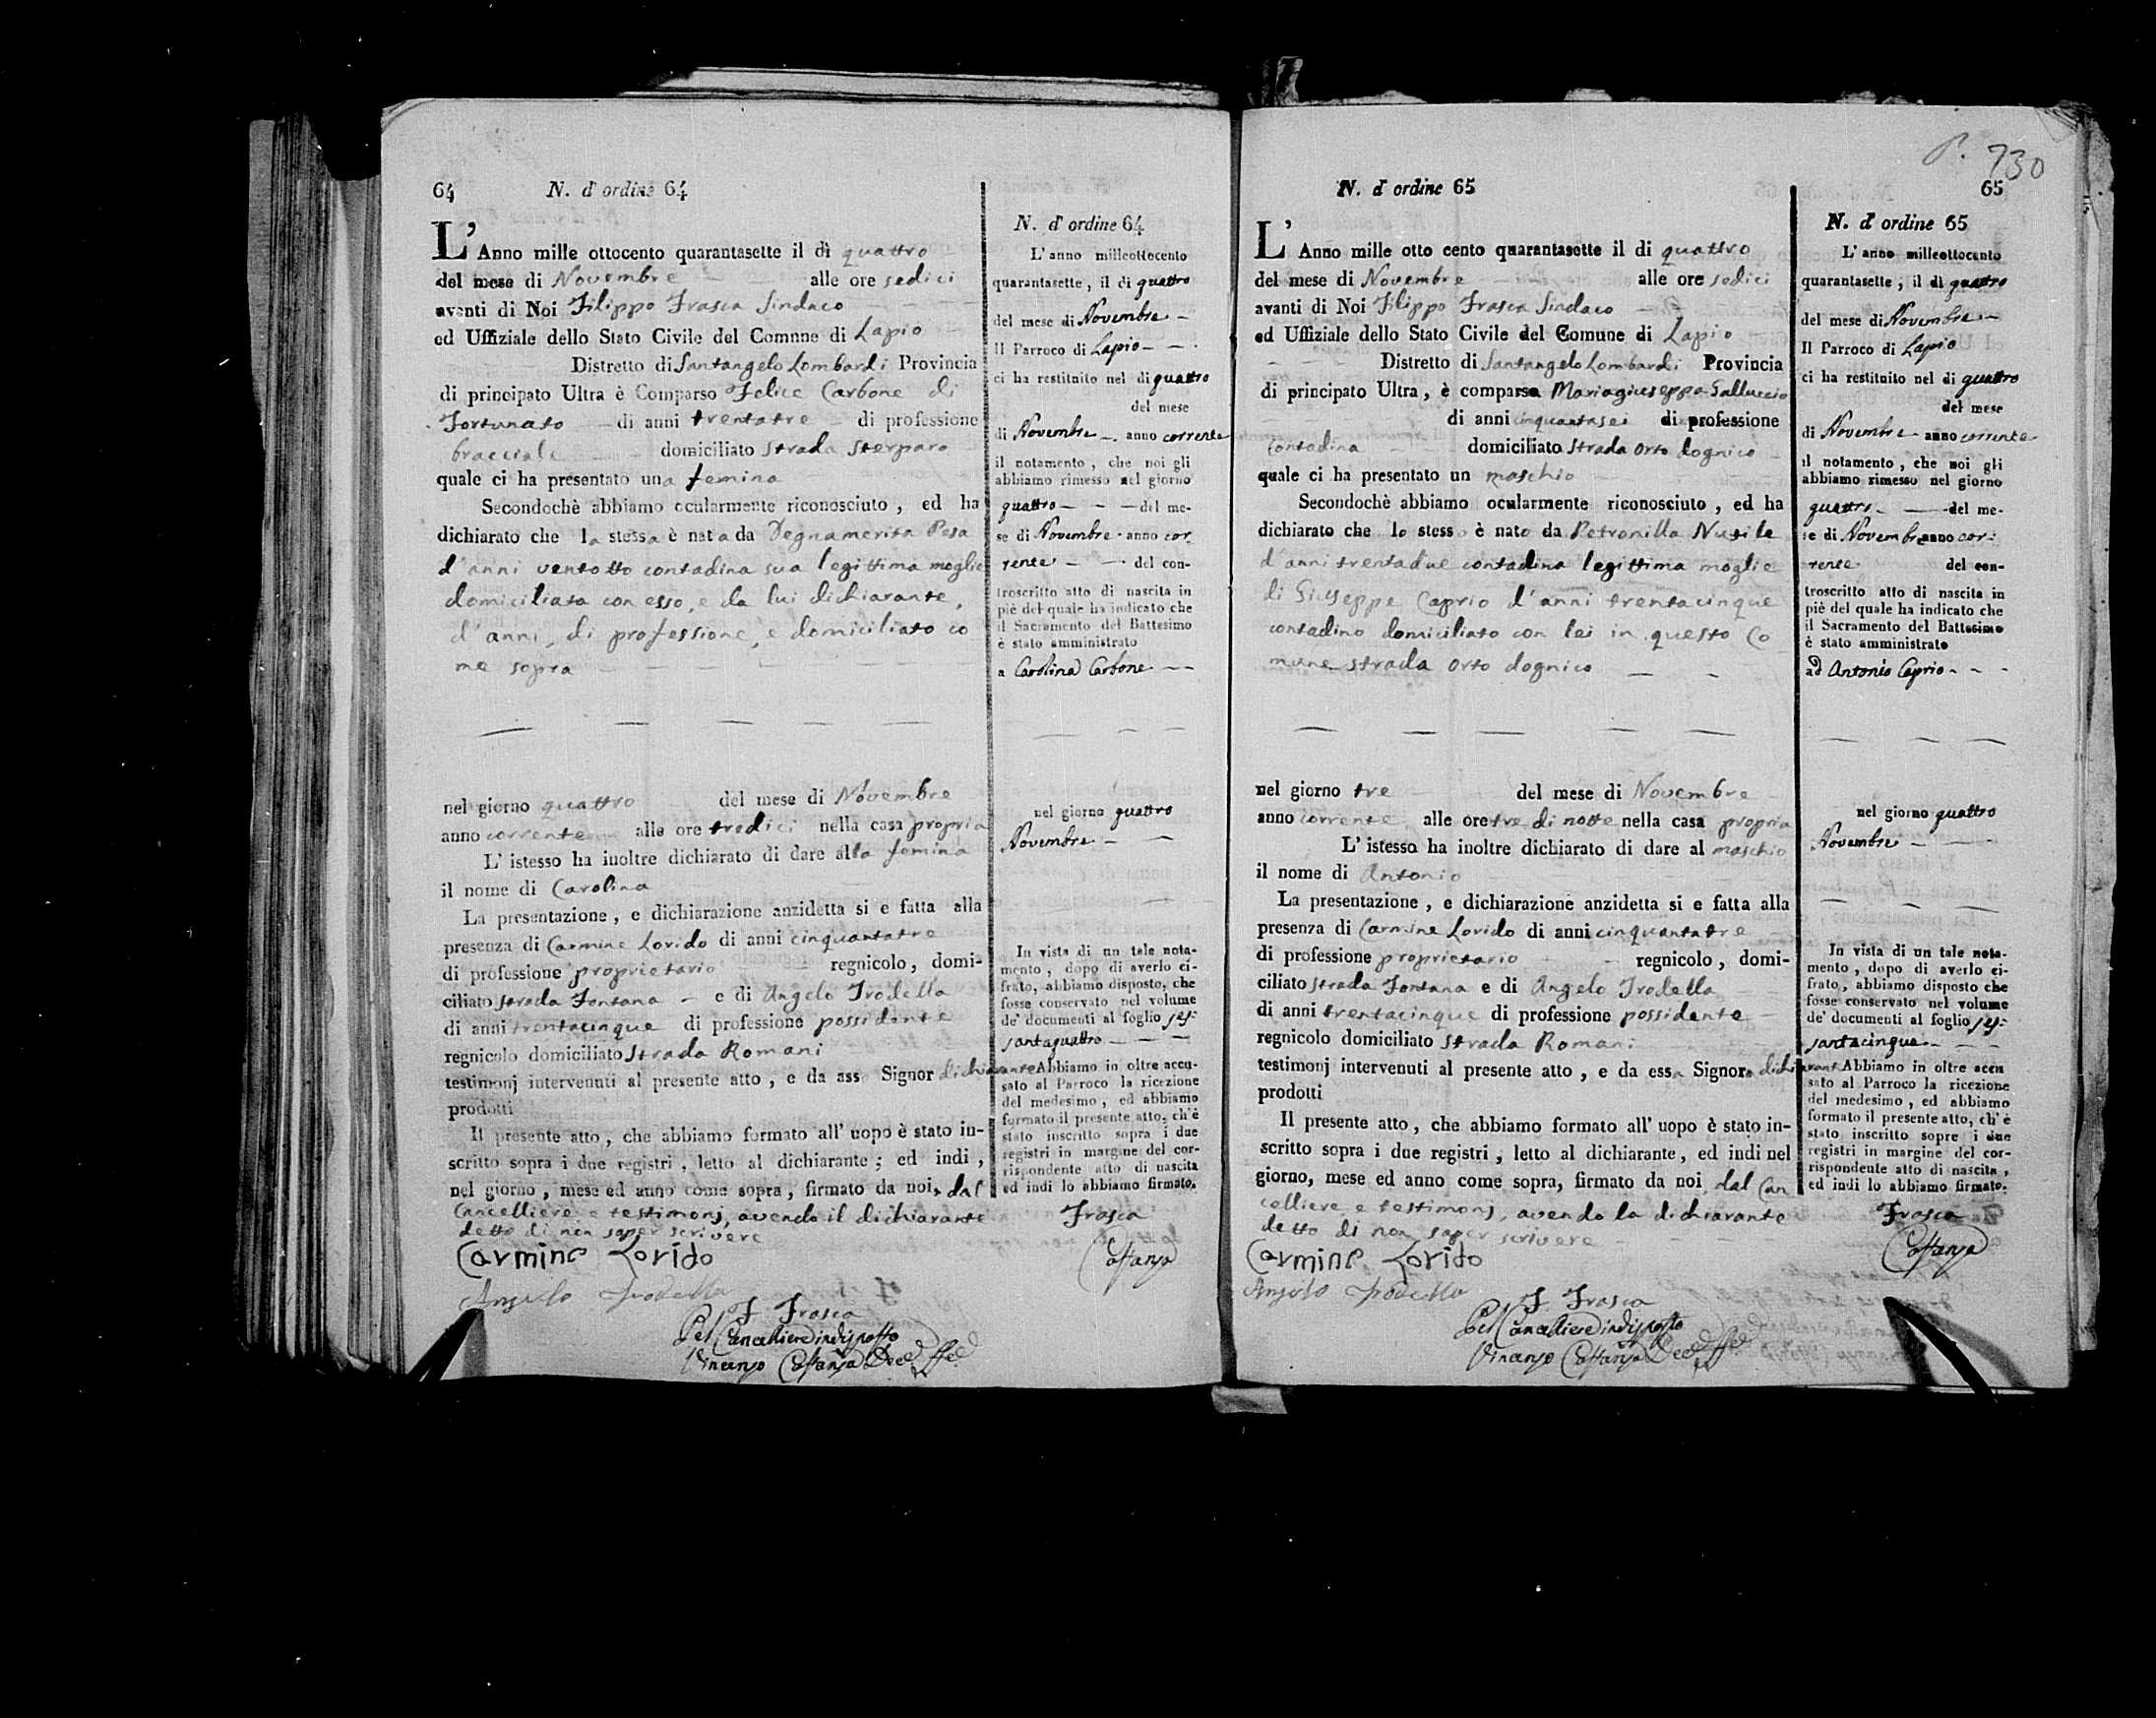 64 N. d' ordine 64
L' Anno mille ottocento quarantasette il dì quattro
del mese di Novembre alle ore sedici
avanti di Noi Filippo Frasca Sindaco
ed Uffiziale dello Stato Civile del Comnne di Lapio
Distretto di Santangelo Lombardi Provincia
di principato Ultra è Comparso Felice Carbone di
Fortunato di anni trentatre di professione
bracciale domiciliato Strada Sterparo
quale ci ha presentato una femina
Secondochè abbiamo ocularmente riconosciuto , ed ha
dichiarato che la stessa è nata da Degnamerita Pesa
d'anni ventotto contadina sua legittima moglie
domiciliata con esso, e da lui dichiarante,
d'anni, di professione, e domiciliato co
me sopra
nel giorno quattro del mese di Novembre
anno corrente alle ore tredici nella casa propria
L' istesso ha inoltre dichiarato di dare alla femina
il nome di Carolina
La presentazione , e dichiarazione anzidetta si e fatta alla
presenza di Carmine Lovido di anni cinquantatre
di professione proprietario regnicolo , domi-
ciliato strada Fontana e di Angelo Trodella
di anni trentacinque di professione possidente
regnicolo domiciliato Strada Romani
testimonj intervenuti al presente atto , e da asso Signor dichiarante
prodotti
Il presente atto , che abbiamo formato all' uopo è stato in-
scritto sopra i due registri , letto al dichiarante ; ed indi ,
nel giorno , mese ed anno come sopra , firmato da noi, dal
Cancelliere e testimonj, avendo il dichiarante
detto di non saper scrivere
Carmine Lovido
Angelo Trodella
F. Frasca
Pel Cancelliere indisposto
N. d' ordine 64
L' anno milleottocento
quarantasette , il di quattro
del mese di Novembre
Il Parroco di Lapio
ci ha restituito nel di quattro
del mese
di Novembre anno corrente
il notamento , che noi gli
abbiamo rimesso nel giorno
quattro del me-
se di Novembre anno cor
rente del con-
troscritto atto di nascita in
piè del quale ha indicato che
il Sacramento del Battesimo
è stato amministrato
a Carolina Carbone
nel giorno quattro
Novembre
In vista di un tale nota-
mento , dopo di averlo ci-
frato, abbiamo disposto, che
fosse conservato nel volume
de' documenti al foglio ses:
santaquattro
Abbiamo in oltre accu-
sato al Parroco la ricezione
del medesimo , ed abbiamo
formato il presente atto, ch'è
stato inscritto sopra i due
registri in margine del cor-
rispondente atto di nascita
ed indi lo abbiamo firmato.
Frasca
P. 730
N. d' ordine 65 65
L' Anno mille otto cento quarantasette il di quattro
del mese di Novembre alle ore sedici
avanti di Noi Filippo Frasca Sindaco
ed Uffiziale dello Stato Civile del Comune di Lapio
Distretto di Santangelo Lombardi Provincia
di principato Ultra , è comparsa Mariagiuseppa Galluccio
di anni cinquantasei di professione
contadina domiciliato Strada Orto dognico
quale ci ha presentato un maschio
Secondochè abbiamo ocularmente riconosciuto , ed ha
dichiarato che lo stesso è nato da Petronilla Nusile
d'anni trentadue contadina legittima moglie
di Giuseppe Caprio d'anni trentacinque
contadino domiciliato con lei in questo Co
mune strada Orto dognico
nel giorno tre del mese di Novembre
anno corrente alle ore tre di notte nella casa propria
L' istesso ha inoltre dichiarato di dare al maschio
il nome di Antonio
La presentazione , e dichiarazione anzidetta si e fatta alla
presenza di Carmine Lovido di anni cinquantatre
di professione proprietario regnicolo , domi-
ciliato strada Fontana e di Angelo Trodella
di anni trentacinque di professione possidente
regnicolo domiciliato Strada Romani
testimonj intervenuti al presente atto , e da essa Signora dichiarante
prodotti
Il presente atto , che abbiamo formato all' uopo è stato in-
scritto sopra i due registri , letto al dichiarante , ed indi nel
giorno, mese ed anno come sopra, firmato da noi, dal Can
celliere e testimonj, avendo la dichiarante
detto di non saper scrivere
Carmine Lovido
Angelo Trodella
F. Frasca
Pel Cancelliere indisposto
N. d' ordine 65
L' anno milleottocento
quarantasette , il di quattro
del mese di Novembre
Il Parroco di Lapio
ci ha restituito nel di quattro
del mese
di Novembre anno corrente
il notamento , che noi gli
abbiamo rimesso nel giorno
quattro del me-
se di Novembre anno cor:
rente del con-
troscritto atto di nascita in
piè del quale ha indicato che
il Sacramento del Battesimo
è stato amministrato
ad Antonio Caprio
nel giorno quattro
Novembre
In vista di un tale nota-
mento , dopo di averlo ci-
frato , abbiamo disposto che
fosse conservato nel volume
de' documenti al foglio ses:
santacinque
Abbiamo in oltre accu
sato al Parroco la ricezione
del medesimo , ed abbiamo
formato il presente atto, ch'è
stato inscritto sopre i due
registri in margine del cor-
rispondente atto di nascita ,
ed indi lo abbiamo firmato.
Frasca